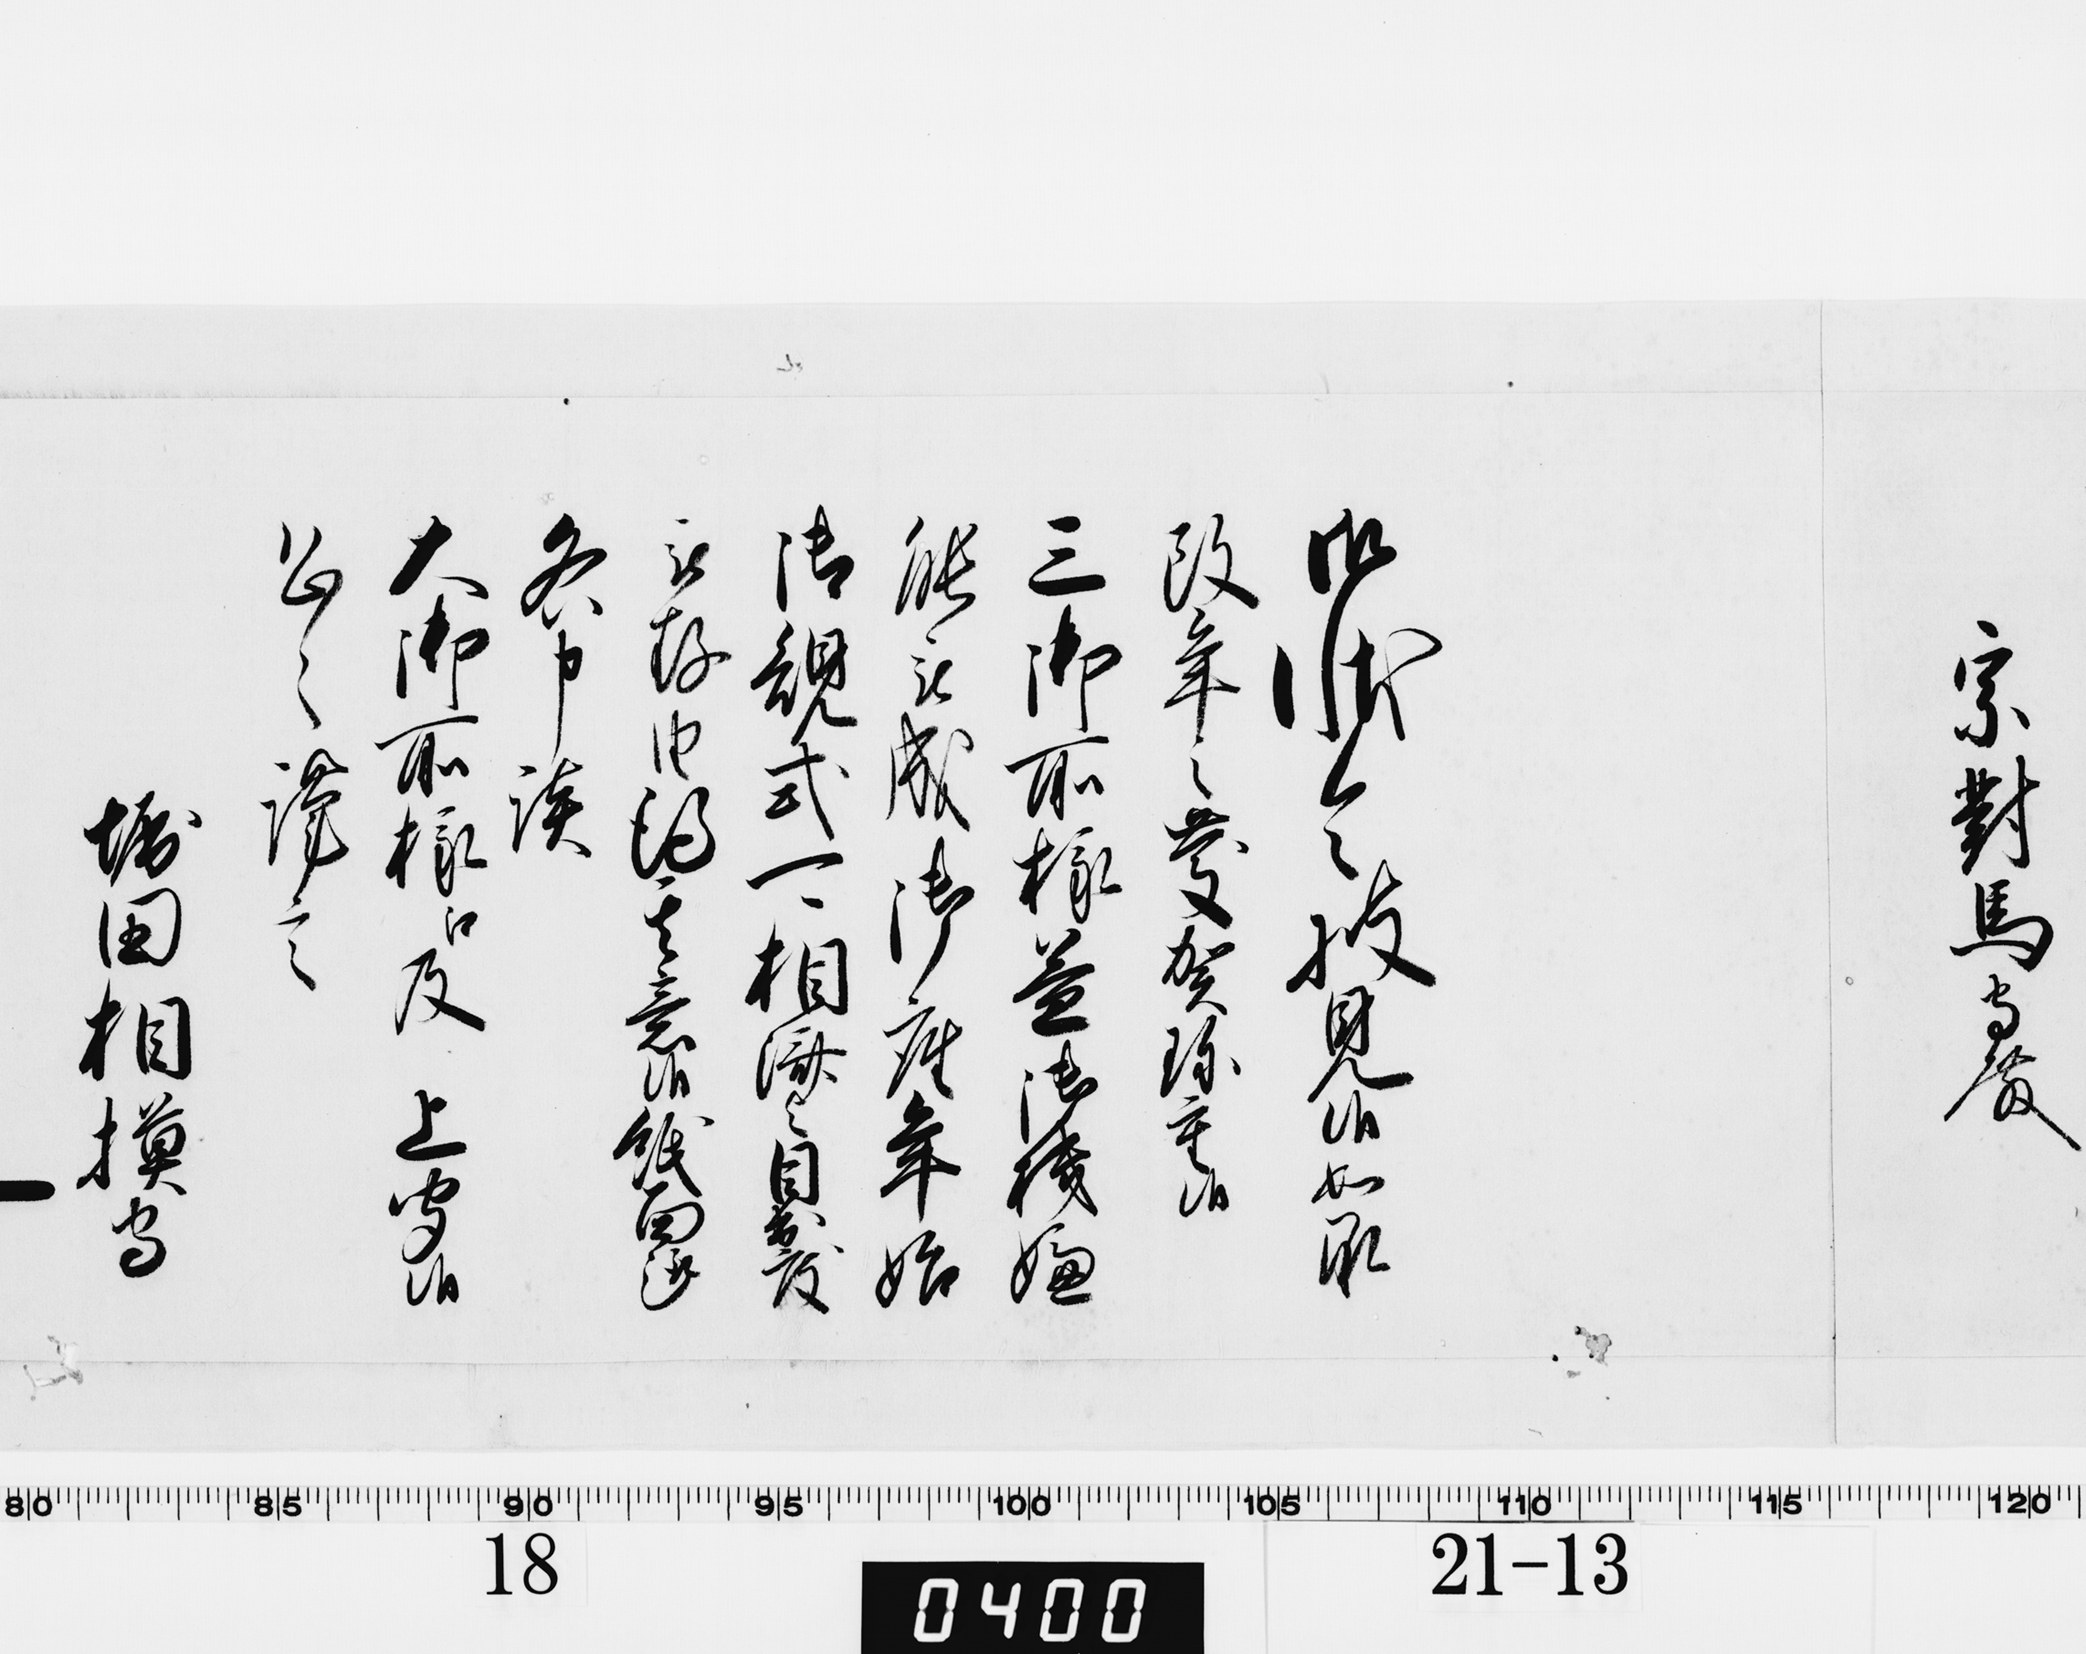 宗對馬守殿
御状令披見候如承
改年之慶賀珍重候
三御所様益御機嫌
能被成御座年始
御規式一ゝ相濟之目出度
被存由得其意候紙面之趣
各申談
大御所様江及上聞候
恐ゝ謹言
堀田相模守
80 85 90 95 100 105 110 115 120
18
0400
21-13